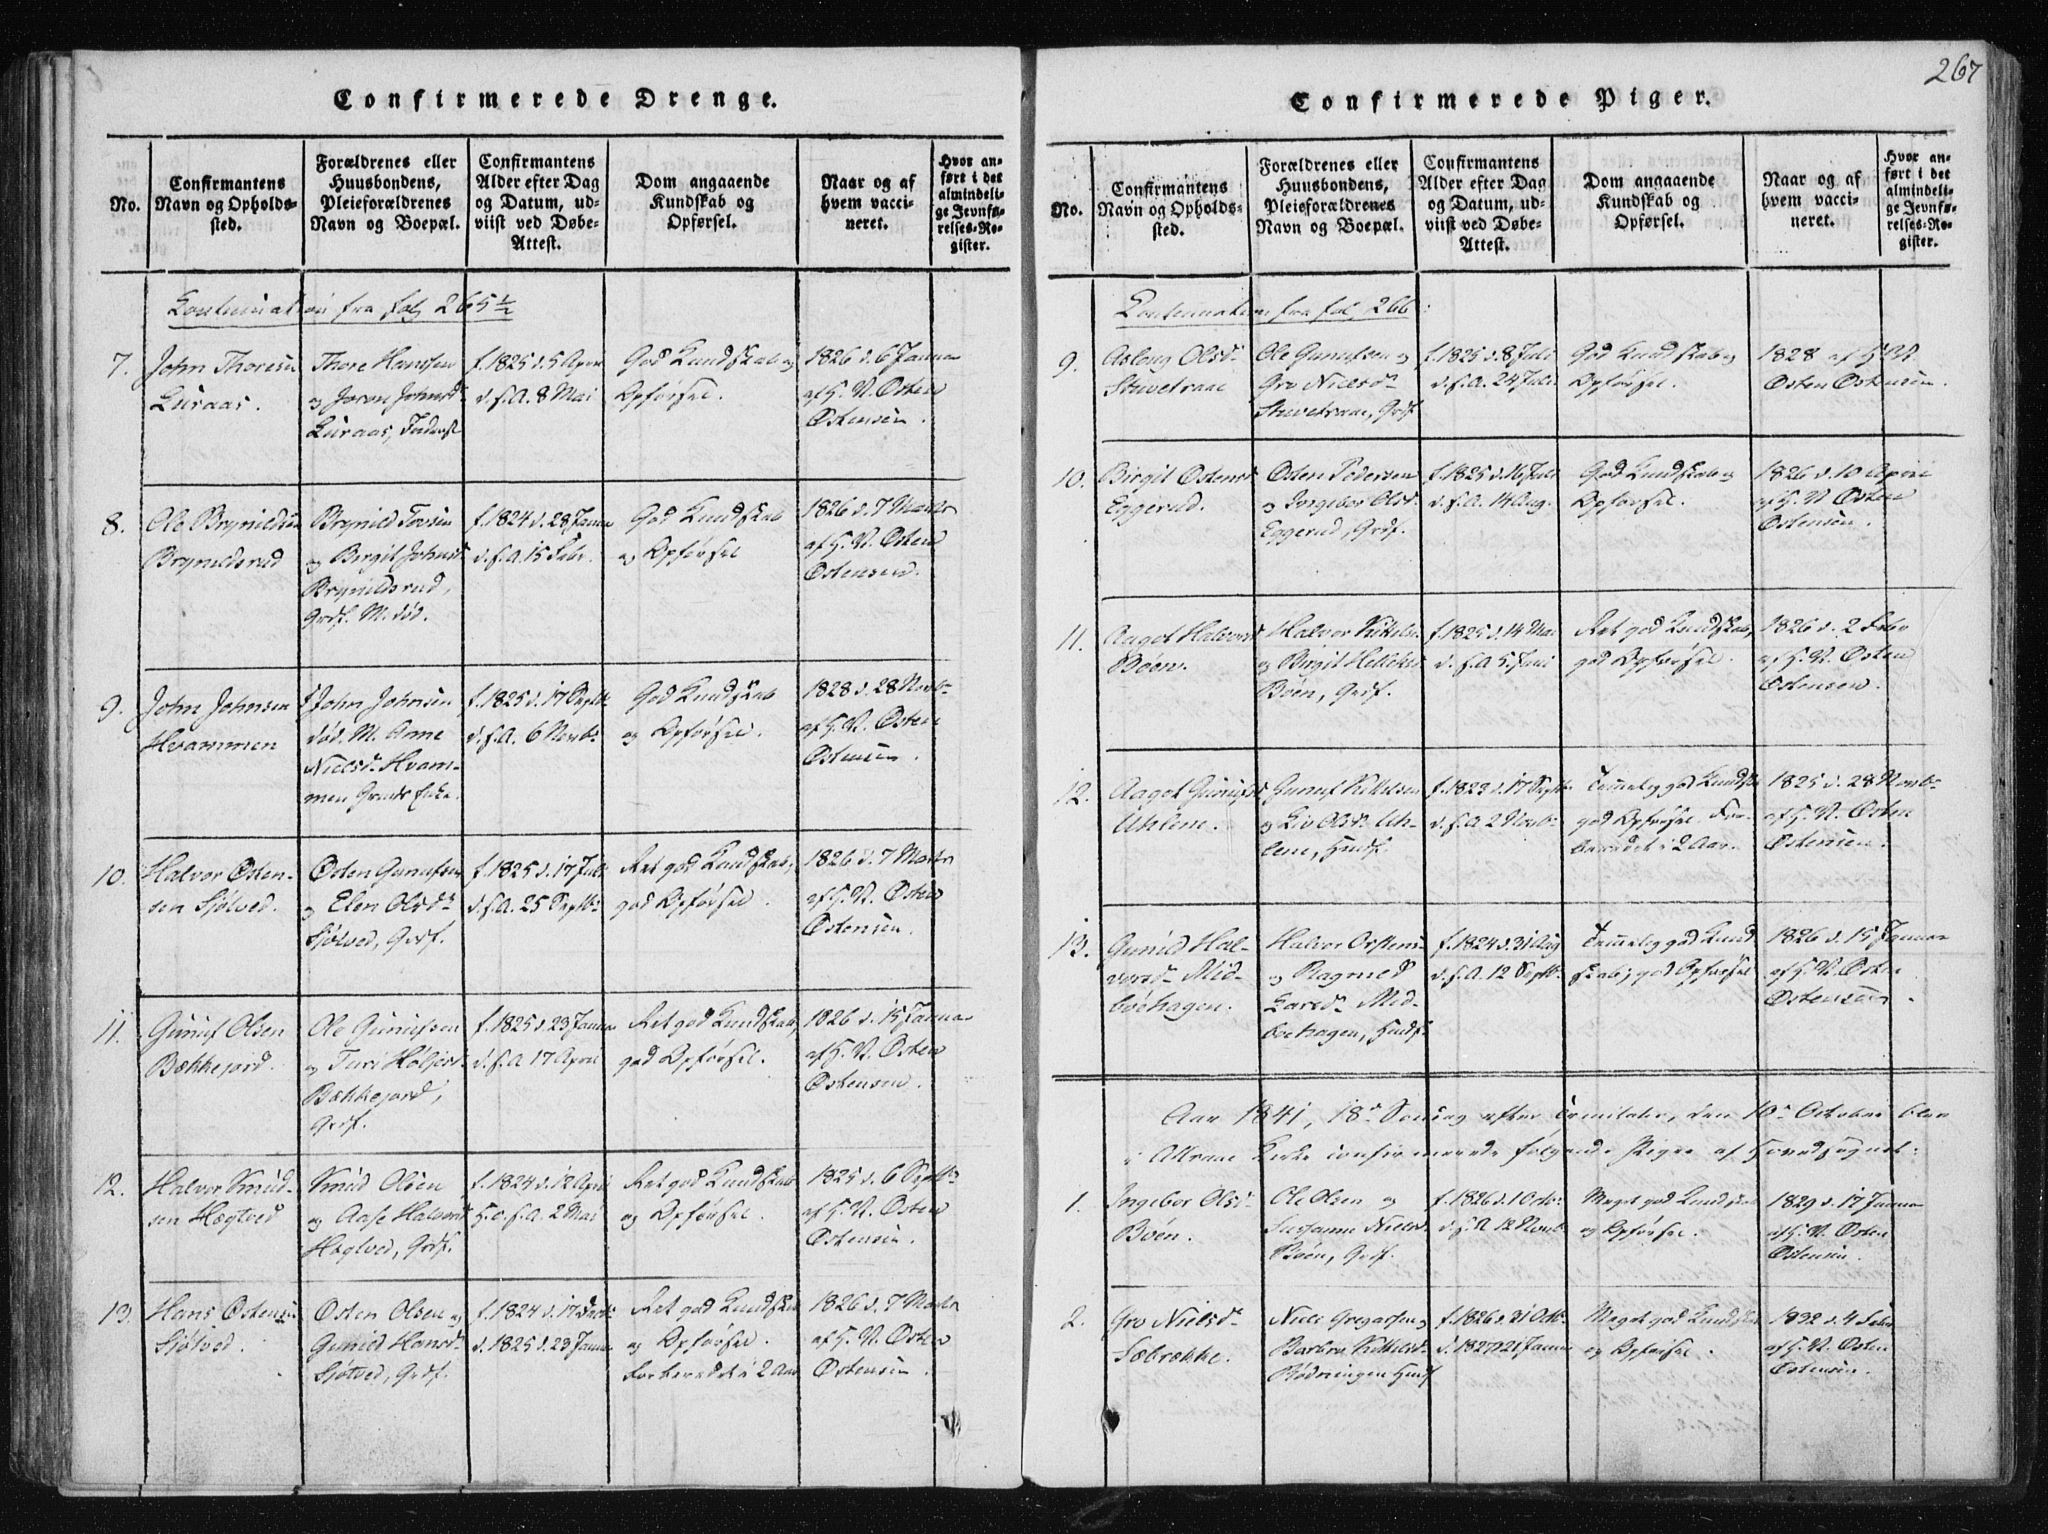 267
Confirmerede Drenge.
No.
Confirmantens
Navn og Opholds-
sted.
Forældrenes eller
Huusbondens,
Pleieforældrenes
Navn og Boepæl.
Confirmantens
Alder efter Dag
og Datum, ud-
viist ved Døbe-
Attest.
Dom angaaende
Kundskab og
Opførsel.
Naar og af
hvem vacci-
neret.
Hvor an-
ført i det
almindeli-
ge Jevnfø-
relses-Re-
gister.
Continuation fra fol 265½
7.
John Thoresen
Luraas.
Thore Hansen
og Joron Johnsd.
Luraas,
f. 1825 d. 5 April
d. s. A. 8 Mai
God Kundskab og
Opførsel.
1826 d. 6 Janua
af H. N. Østen
Østensen.
8.
Ole Brynildsen
Brynildsrud
Brynild Tovsen
og Birgit Johnsd
Brynildsrud,
Grdf. M. død.
f. 1824 d. 28 Janua
d. s. A. 15 Febr.
God Kundskab
og Opførsel
1826 d. 7 Marts
af H. N. Østen
Østensen.
9.
John Johnsen
Hvammen
John Johnsen
død. M. Anne
Nielsd. Hvam-
men Grmds Enke.
f. 1825 d. 17 Septb
d. s. A. 6 Novbr
God Kundskab
og Opførsel.
1828 d. 28 Novbr
af H. N. Østen
Østensen.
10.
Halvor Østen-
sen Sjøtved.
Østen Gunufsen
og Elen Olsdr
Sjøtved, Grdf.
f. 1825 d. 17 Juli
d. s. A. 25 Septbr
Ret god Kundskab,
god Opførsel.
1826 d. 7 Marts
af H. N. Østen
Østensen.
11.
Gunuf Olsen
Bækkejord.
Ole Gunufsen
og Turi Høljesd.
Bækkejord,
Grdf.
f. 1825 d. 23 Janua
d. s. A 17 April
Ret god Kundskab,
god Opførsel.
1826 d. 15 Janua
af H. N. Østen
Østensen.
12.
Halvor Knud-
sen Hægtved
Knud Olsen
og Aase Halvorsd
Hægtved, Grdf.
f. 1824 d. 12 April
H. d. s. A. 2 Mai
Ret god Kundskab
og Opførsel.
1825 d. 6 Septbr
af H. N. Østen
Østensen.
13.
Hans Østensen
Sjøtved.
Østen Olsen og
Gunild Hansd.
Sjøtved, Grdf.
f. 1824 d. 17 Decbr
d. 1825 d. 23 Janua
Ret god Kundskab
og Opførsel.
Forberedet i 2 Aar
1826 d. 7 Marts
af H. N. Østen
Østensen.
Confirmerede Piger.
No.
Confirmantens
Navn og Opholds-
sted.
Forældrenes eller
Huusbondens,
Pleieforældrenes
Navn og Boepæl.
Confirmantens
Alder efter Dag
og Datum, ud-
viist ved Døbe-
Attest.
Dom angaaende
Kundskab og
Opførsel.
Naar og af
hvem vacci-
neret.
Hvor an-
ført i det
almindeli-
ge Jevnfø-
relses-Re-
gister.
Continuation fra fol. 266.
9.
Aslaug Olsdr
Stuvetraae
Ole Gunufsen og
Gro Nielsdr
Stuvetraae, Grdf
f. 1825 d. 8 Juli
d. s. A. 24 Juli
God Kundskab og
Opførsel.
1828 af H. N.
Østen Østensen.
10.
Birgit Østensd
Eggerud.
Østen Pedersen
og Ingebor Olsd.
Eggerud, Grdf.
f. 1825 d. 16 Juli
d. s. A. 14 Aug.
God Kundskab og
Opførsel.
1826 d. 10 April
af H. N. Østen
Østensen.
11.
Aaget Halvorsd
Bøen.
Halvor Kittilsen
og Birgit Helliksd
Bøen, Grdf.
f. 1825 d. 14 Mai
d. s. A 5 Juni
Ret god Kundskab,
god Opførsel.
1826 d. 2 Febr
af H. N. Østen
Østensen.
12.
Aaget Gunufsd
Uhlene.
Gunuf Kittelsen
og Liv Olsdr Uh-
lene, Husf.
f. 1823 d. 17 Septbr
d. s. A 2 Novbr
Temmelig god Kundsk
god Opførsel. For-
beredet i 2 Aar.
1825 d. 28 Novbr
af H. N. Østen
Østensen.
13.
Gunild Hal-
vorsdr Mid-
bøehagen.
Halvor Østens.
og Ragnild
Larsdr Mid-
bøehagen, Husf.
f. 1824 d. 31 Aug
d. s. A. 12 Septbr
Temmelig god Kund-
skab, god Opførsel
1826 d. 15 Janua
af H. N. Østen
Østensen.
Aar 1841, 18de Søndag efter Trinitatis, den 10de October blev
i Attraae Kirke confirmerede følgende Piger af Hovedsognet.
1.
Ingebor Olsdr
Bøen.
Ole Olsen og
Susanne Nielsd
Bøen, Grdf.
f. 1826 d. 1 Octbr
d. s. A 12 Novb
Meget god Kundskab
og Opførsel.
1829 d. 17 Janua
af H. N. Østen
Østensen.
2.
Gro Nielsdr
Sæbrække.
Niels Gregarsen og
Barbro Kittelsd.
Rødningen Husf
f. 1826 d. 31 Octbr
d. 1827 21 Janua
Meget god Kundskab
og Opførsel.
1832 d. 4 Febr
af H. N. Østen
Østensen.